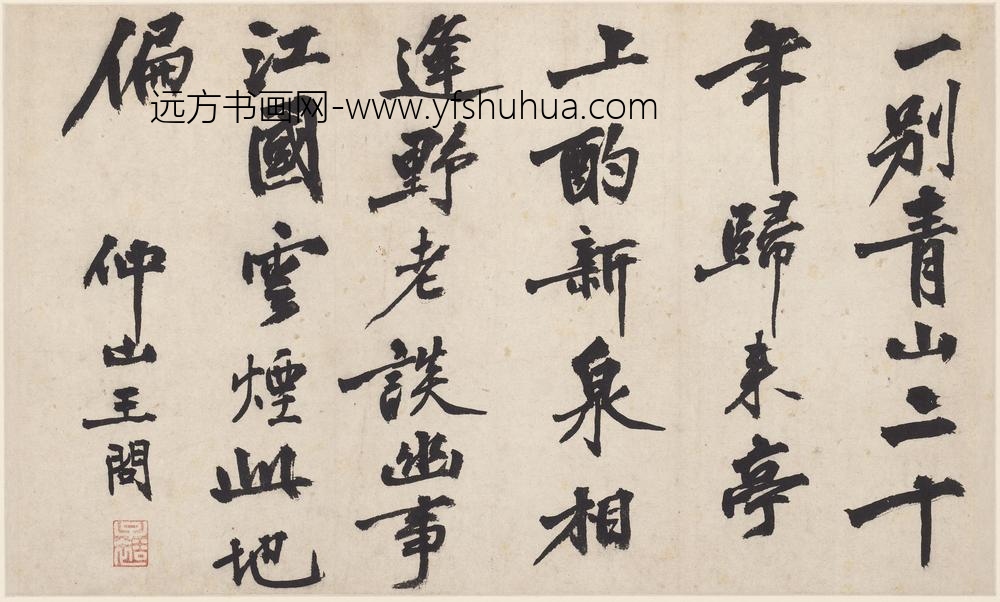 一別青山二十
年歸来亭
上酌新泉相
逢野老談幽事
江國雲煙此地
偏
仲山王問
远方书画网-www.yfshuhua.com